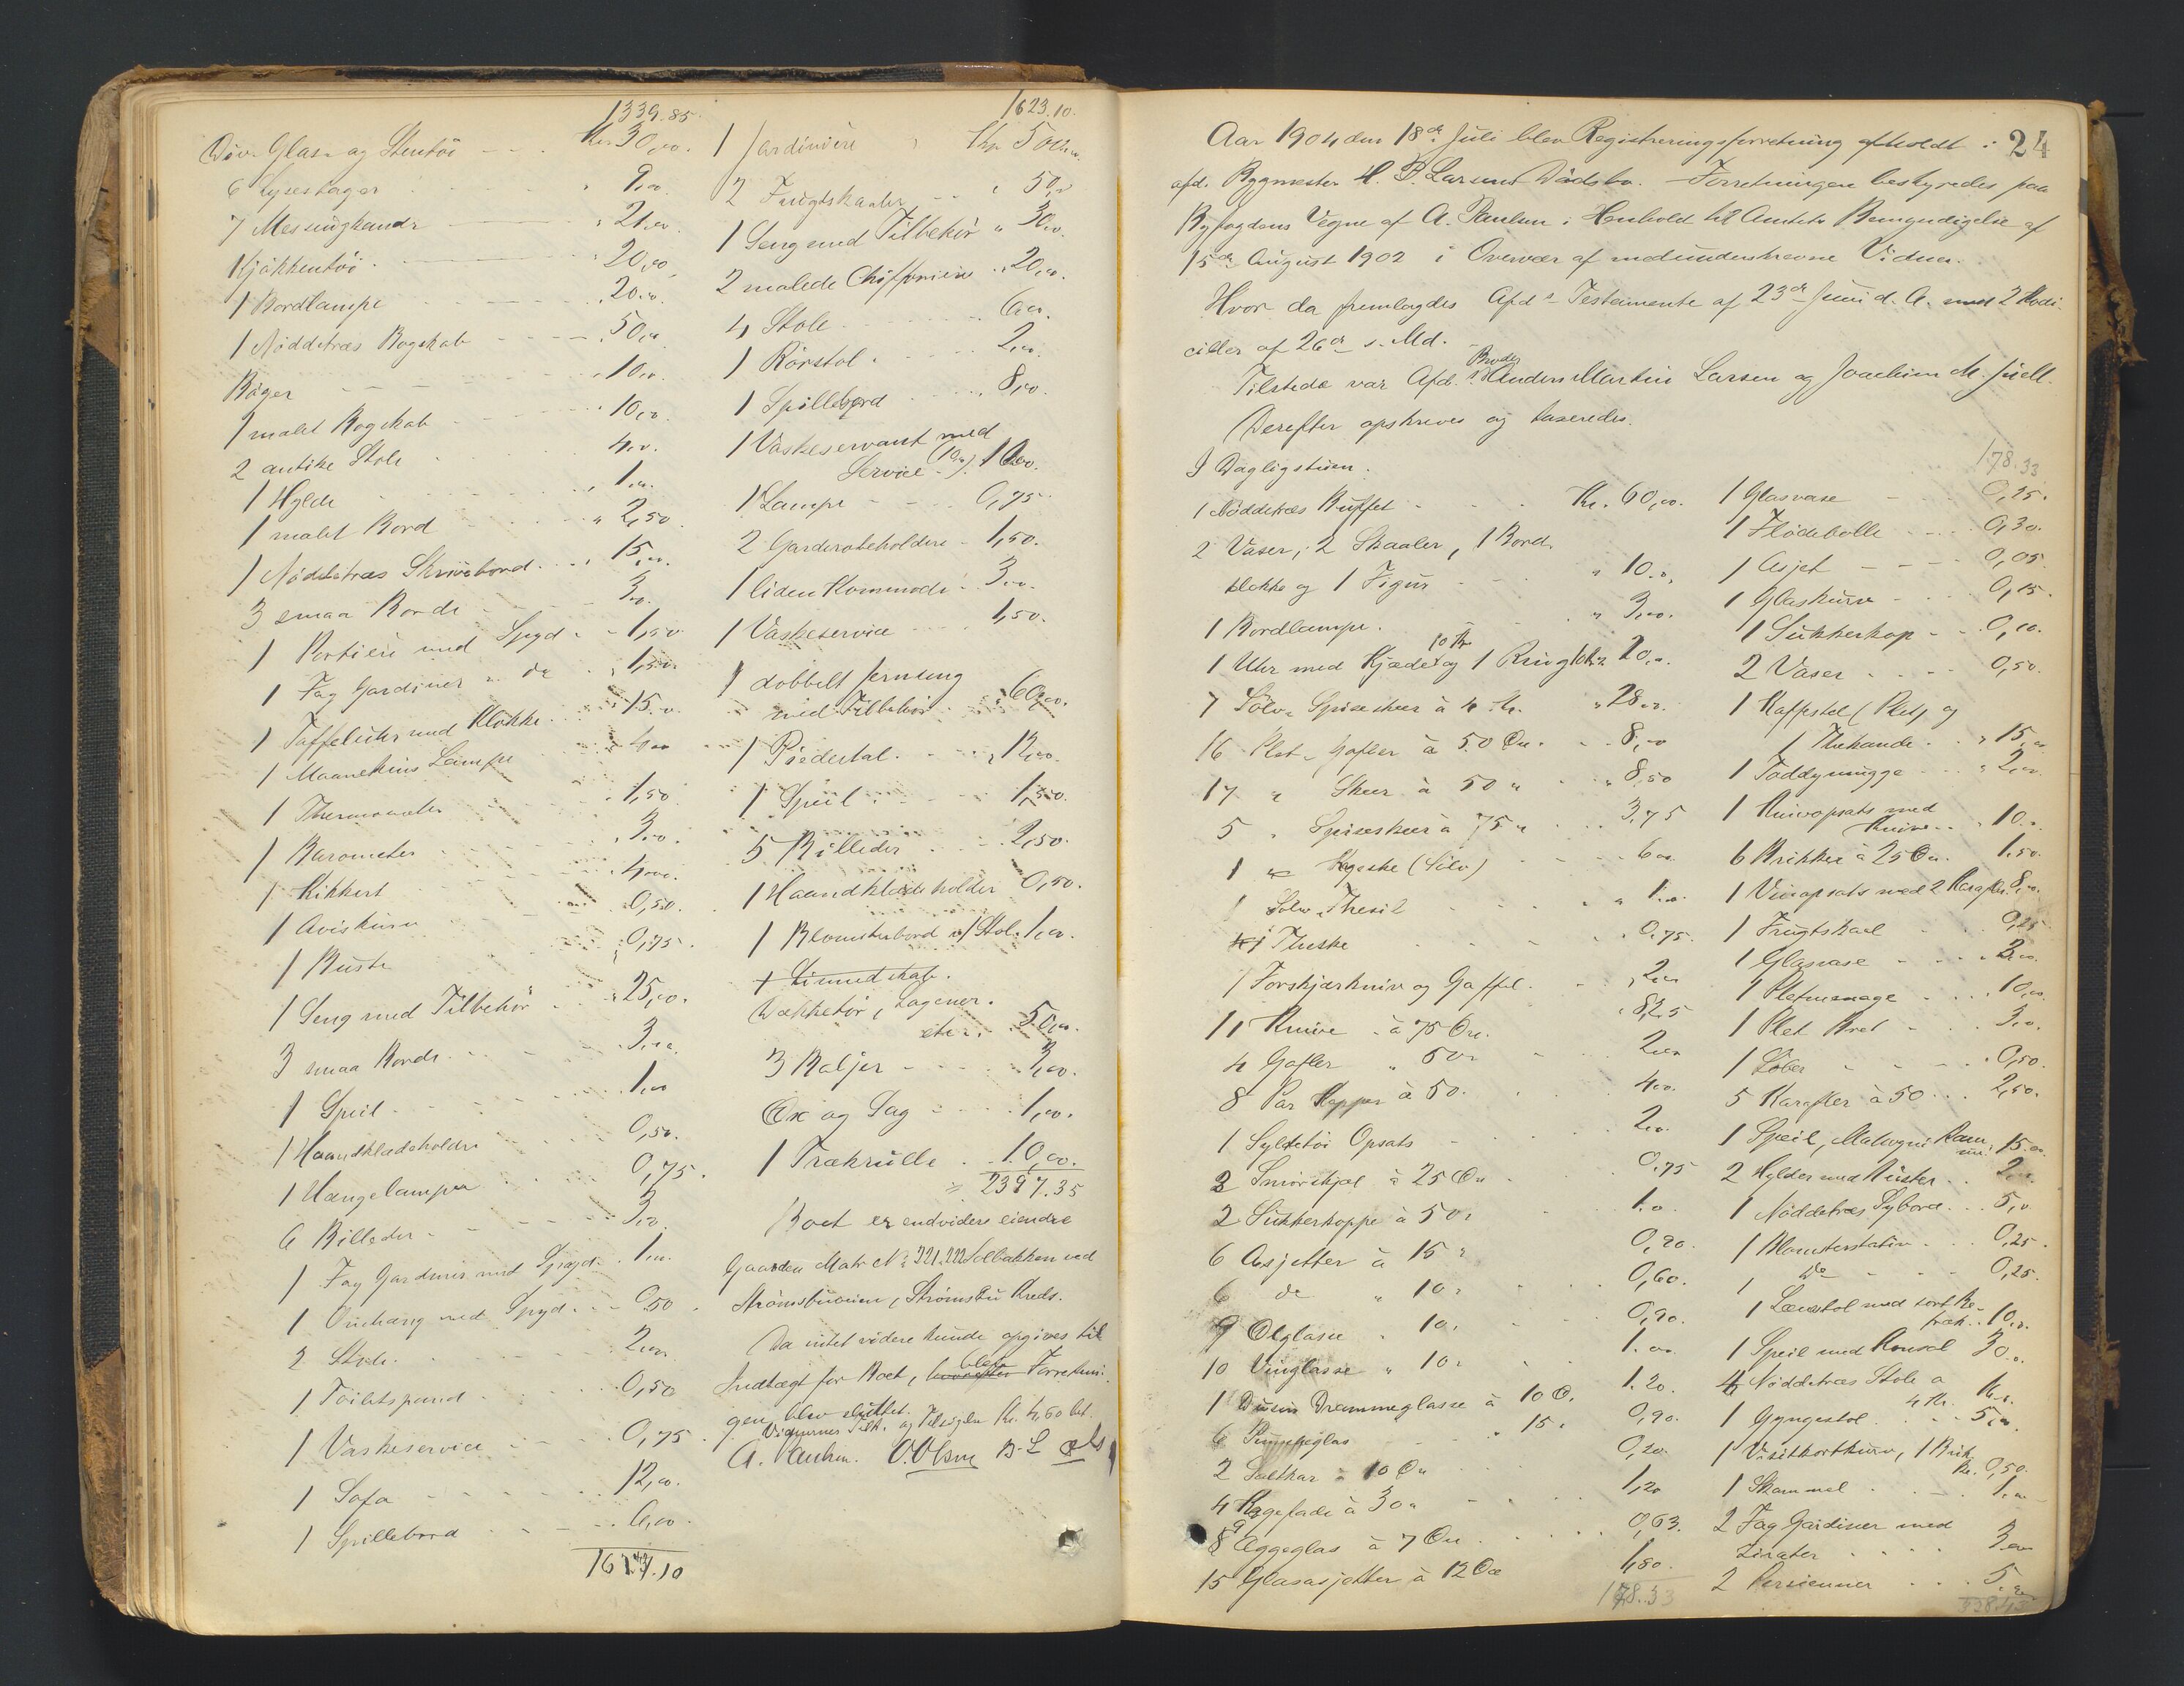 1339.85
Div. Glas- og Stentøi - - . Kr. 30,00.
6 Lysestager . . . " 9,00
7 Messingkander " 21,00.
Kjøkkentøi . 20,00
1 Bordlampe . 20,00
1 Nøddetræs Bogskab . 50,00
Bøger . 10,00
1 malet Bogskab . 10,00
2 antike Stole 4,00.
1 Hylde . 1,00.
1 malet Bord " 2,50
1 Nøddetræs Skrivebord . 15,00.
3 smaa Borde 3,00.
1 Portiere med Spyd . - 1,50
1 Fag Gardiner " do 1,50
1 Taffeluhr med Klokke . 15,00
1 Maaneskins Lampe 4,00
1 Thermometer . 1,50
1 Barometer . 3,00.
1 Kikkert . 4,00.
1 Aviskurv 0,50.
1 Buste 0,75.
1 Seng med Tilbehør " 25,00.
3 smaa Borde . 3,00.
1 Speil . 1,00
1 Haandklædeholder 0,50.
1 Hængelampe 0,75.
6 Billeder . 3,00.
1 Fag Gardiner med Spyd . 1,00.
1 Omhæng med Spyd . - 0,50.
2 Stole . 2,00
1 Toiletspand . 0,50
1 Vaskeservice 0,75.
1 Sofa 12,00.
1 Spillebord . 6,00.
1623.10
1623.10
1 Jardiniere " Kr. 50,00.
2 Frugtskaaler - - " 50,00
1 Seng med Tilbehør " 30,00.
2 malede Chiffonier . 20,00.
4 Stole . 6,00.
1 Rørstol . 2,00.
1 Spillebord . 8,00.
1 Vaskeservant med
Service
1 Lampe - - 0,75
2 Garderobeholdere - 1,50.
1 liden Kommode . 3,00.
1 Vaskeservice 1,50.
1 dobbelt Jernseng
med Tilbehør 60,00.
1 Piedestal . 12,00.
1 Speil . 1,50.
5 Billeder 2,50.
1 Haandklædeholder 0,50.
1 Blomsterbord m/ Stol . 1,00.
1 Linnedskab.
Dækketøi, Lagener.
etc. . 50,00.
3 Baljer - 3,00.
Øx og Sag - 1,00.
1 Trækrulle . 10,00.
2397.35
Boet er endvidere eiendre
Gaarden Matr. No 221.222 Solbakken ved
Strømsbuveien, Strømsbu Kreds.
Da intet videre kunde opgives til
Indtægt for Boet, hvorefter blev Forretnin-
gen blev sluttet.
Vidnernes Tilk. og Tilsigelse Kr. 4,60 bet.
A. Paulsen. O. Olsen
24
Aar 1904 den 18de Juli blev Registreringsforretning afholdt i
afd. Bygmester H. P. Larsens Dødsbo. Forretningen bestyredes paa
Byfogdens Vegne af A. Paulsen i Henhold til Amtets Bemyndigelse af
15de August 1902 i Overvær af medunderskrevne Vidner.
Hvor da fremlagdes Afd.s Testamente af 23de Juni d. A. med 2 Kodi-
ciller af 26de s. Md.
Tilstede var Afd.s Broder Anders Martin Larsen og Joachim M. Juell.
Derefter opskreves og taseredes.
I Dagligstuen.
1 Nøddetræs Buffet - Kr. 60,00.
2 Vaser, 2 Skaaler, 1 Bord-
klokke og 1 Figur " 10,00,
1 Bordlampe . " 3,00.
1 Uhr med Kjæde 10 Kr og 1 Ring 10 Kr 20,00.
7 Sølv- Spiseskeer à 4 Kr. " 28,00.
16 Plet- Gafler à 50 Øre . 8,00
17 " Skeer à 50 " " 8,50
5 " Spiseskeer à 75 " 3,75
1 Rageske (Sølv) 6,00
1 Sølv-Thesil " 1,00.
1 Theske 0,75.
1 Forskjærkniv og Gaffel . 2,00
11 Knive à 75 Øre. 8,25
4 Gafler " 50 " 2,00
8 Par Kopper à 50. 4,00.
1 Syltetøi Opsats 2,00.
3 Smørskjæl à 25 Øre 0,75
2 Sukkerkopper à 50 " 1.00
6 Asjetter à 15 " 0,90.
6 do " 10 " 0,60.
9 Ølglasse " 10 " 0,90.
10 Vinglasse " 10 " 1.00.
1 Dusin Drammeglasse à 10 Ø. 1.20.
6 Punscheglas " 15 " 0,90.
2 Saltkar à 10 Øre 0,20.
4 Kagefade à 30 " 1,20
9 Æggeglas à 7 Øre 0,63.
15 Glasasjetter à 12 Øre 1,80.
178.33
178.33
1 Glasvase 0,25.
1 Flødebolle 0,30.
1 Asjet 0,05
1 Glaskurv 0,15.
1 Sukkerkop - 0,10.
2 Vaser 0,50.
1 Kaffestel (Plet) og
1 Thekande . " 15,00
1 Toddymugge " 2,00.
1 Knivopsats med
Knive . 10.00
6 Brikker à 25 Øre. 1.50.
1 Vinopsats med 2 Karafler 8,00.
1 Frugtskaal 0,25
1 Glasvase 2,00.
1 Pletmenage 10,00.
1 Plet Bret 3.00.
1 Løber 0,50.
5 Karafler à 50 . 2,50.
1 Speil, Mahogni Ram-
me 15.00.
2 Hylder med Buster . 2,00.
1 Nøddetræs Sybord . 5,00
1 Blomsterstativ . 0,25.
1 do 0,25.
1 Lænestol med sort Be-
træk . 10.00.
1 Speil med Konsol 30.00
4 Nøddetræs Stole à
4 Kr. 16.00.
1 Gyngestol . 5,00.
1 Visitkortkurv, 1 Brik-
ke 0,50.
1 Skammel 1.00
2 Fag Gardiner med
Zirater 3.00
2 Persienner 5.00